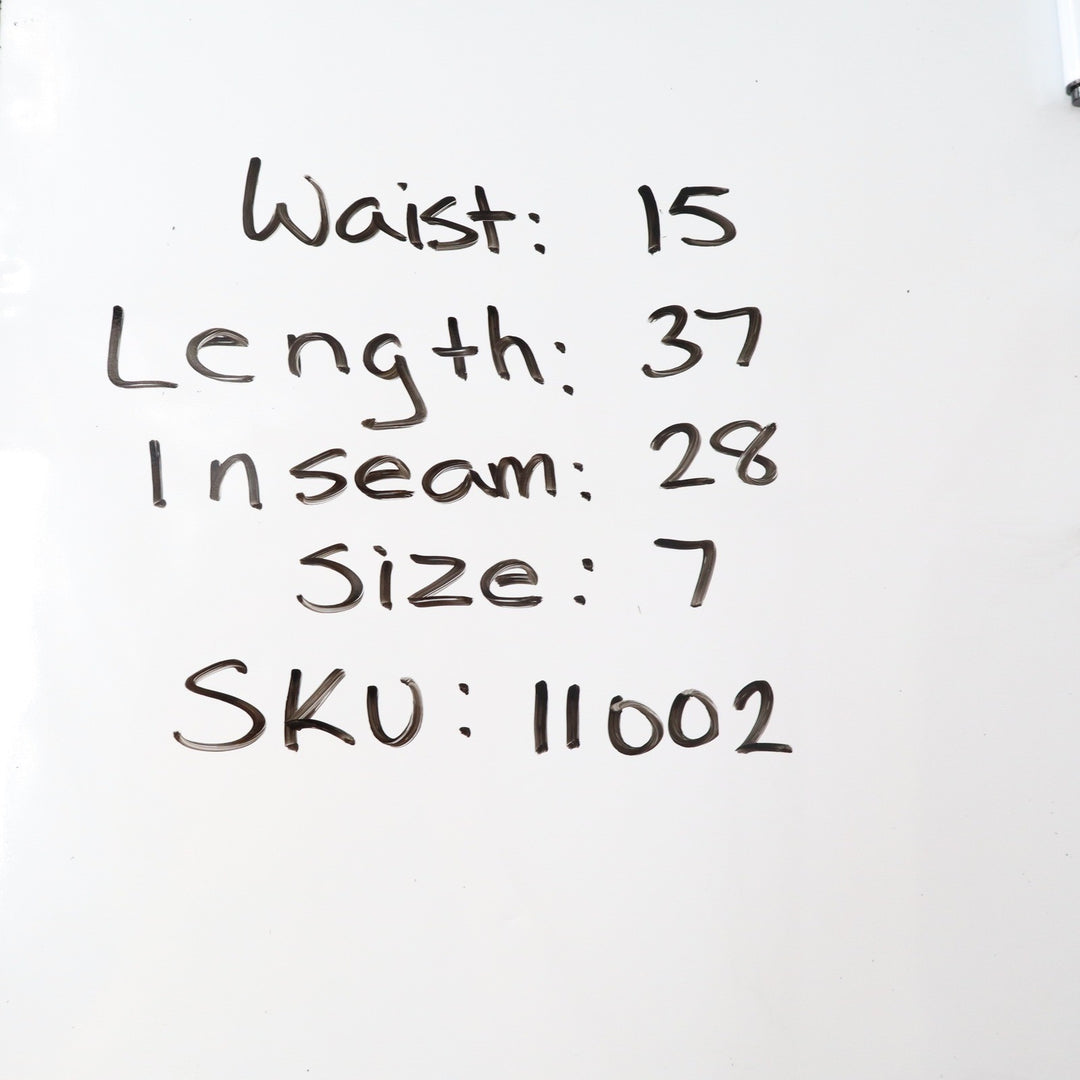 Waist: 15
Length: 37
Inseam: 28
Size: 7
SKU: 11002